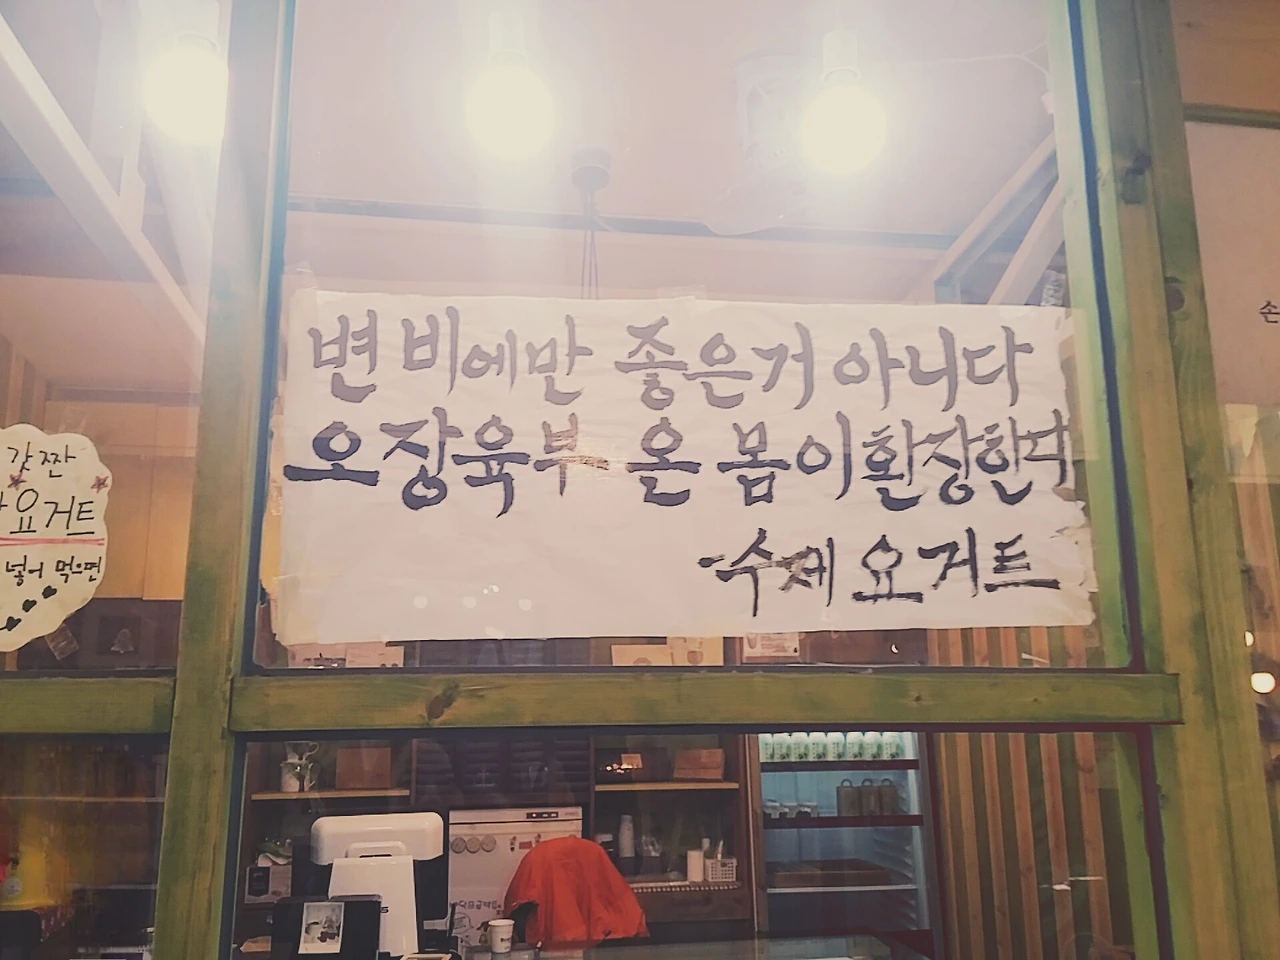 변비에만 좋은거 아니다
오장육부 온 몸이 환장한다
-수제 요거트
갈짠
요거트
넣어 먹으면
손